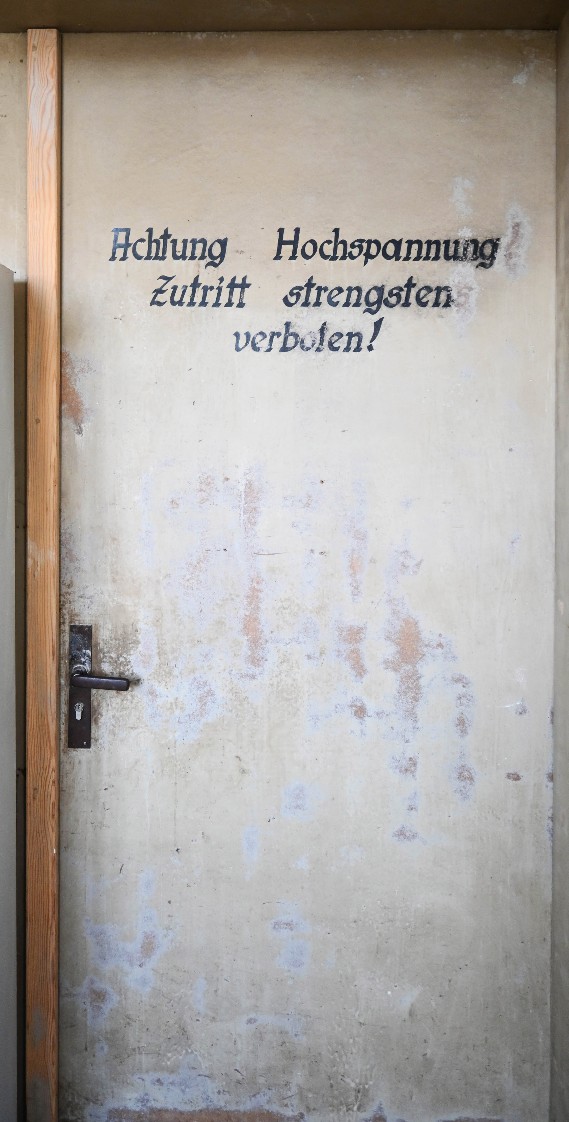 Achtung Hochspannung
Zutritt strengstens
verboten!